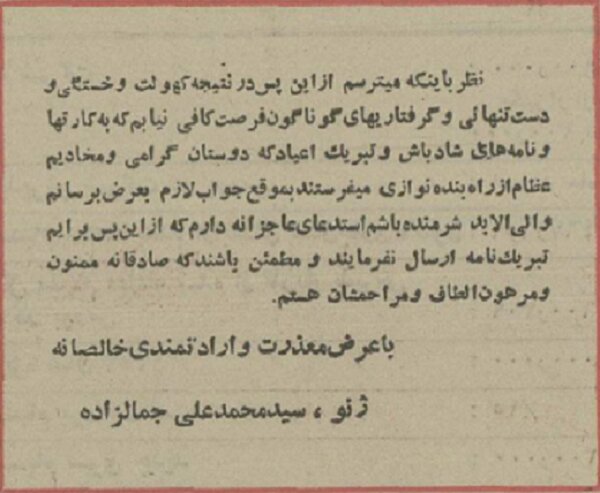 نظر باینکه میترسم از این پس در نتیجه کهولت و خستگی و
دست تنهائی و گرفتاریهای گوناگون فرصت کافی نیابم که به کارتها
و نامه‌های شادباش و تبریک اعیاد که دوستان گرامی و مخادیم
عظام از راه بنده نوازی میفرستند بموقع جواب لازم بعرض برسانم
و الی الابد شرمنده باشم استدعای عاجزانه دارم که از این پس برایم
تبریک نامه ارسال نفرمایند و مطمئن باشند که صادقانه ممنون
و مرهون الطاف و مراحمشان هستم.
با عرض معذرت و ارادتمندی خالصانه
ژنو ، سید محمد علی جمالزاده